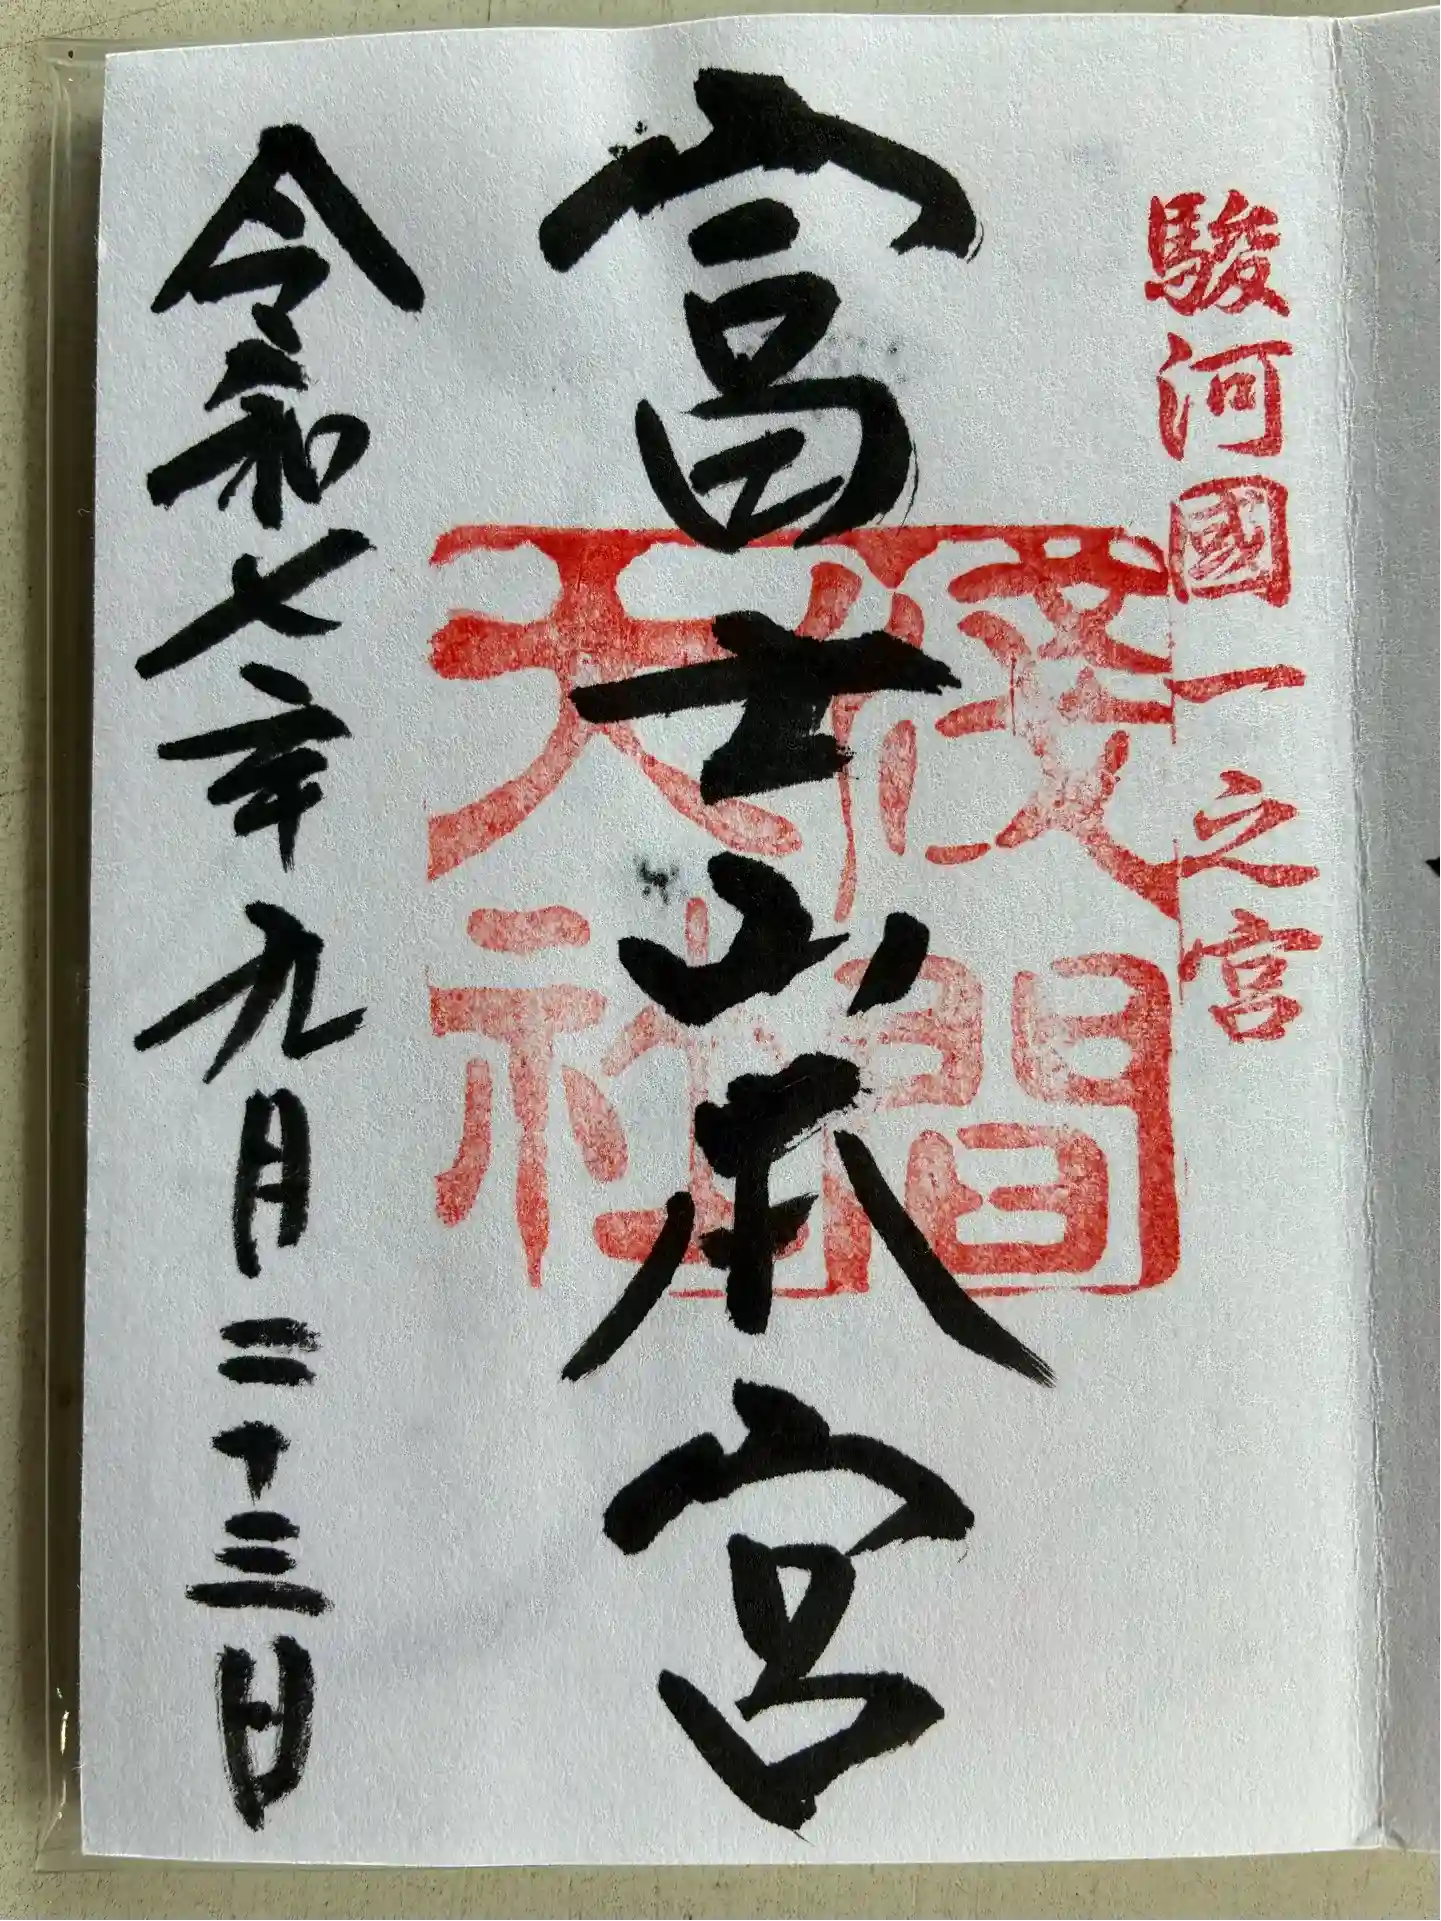 駿河國一之宮
富士山本宮
浅間大社
令和七年九月二十三日